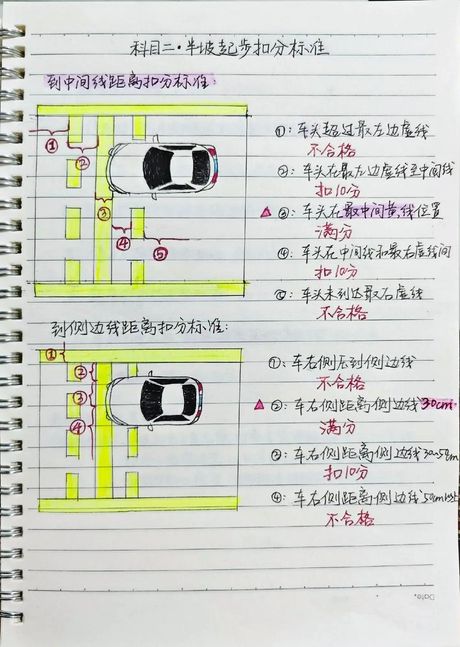 科目二·半坡起步扣分标准
到中间线距离扣分标准:
① ② ③ ④ ⑤
①: 车头超过最左边虚线
不合格
②: 车头在最左边虚线至中间线
扣10分
▲ ③: 车头在最中间黄线位置
满分
④: 车头在中间线和最右虚线间
扣10分
⑤: 车头未到达最右虚线
不合格
到侧边线距离扣分标准:
① ② ③ ④
①: 车右侧压到侧边线
不合格
▲ ②: 车右侧距离侧边线30cm
满分
③: 车右侧距离侧边线30-50cm
扣10分
④: 车右侧距离侧边线50cm以上
不合格
Date.